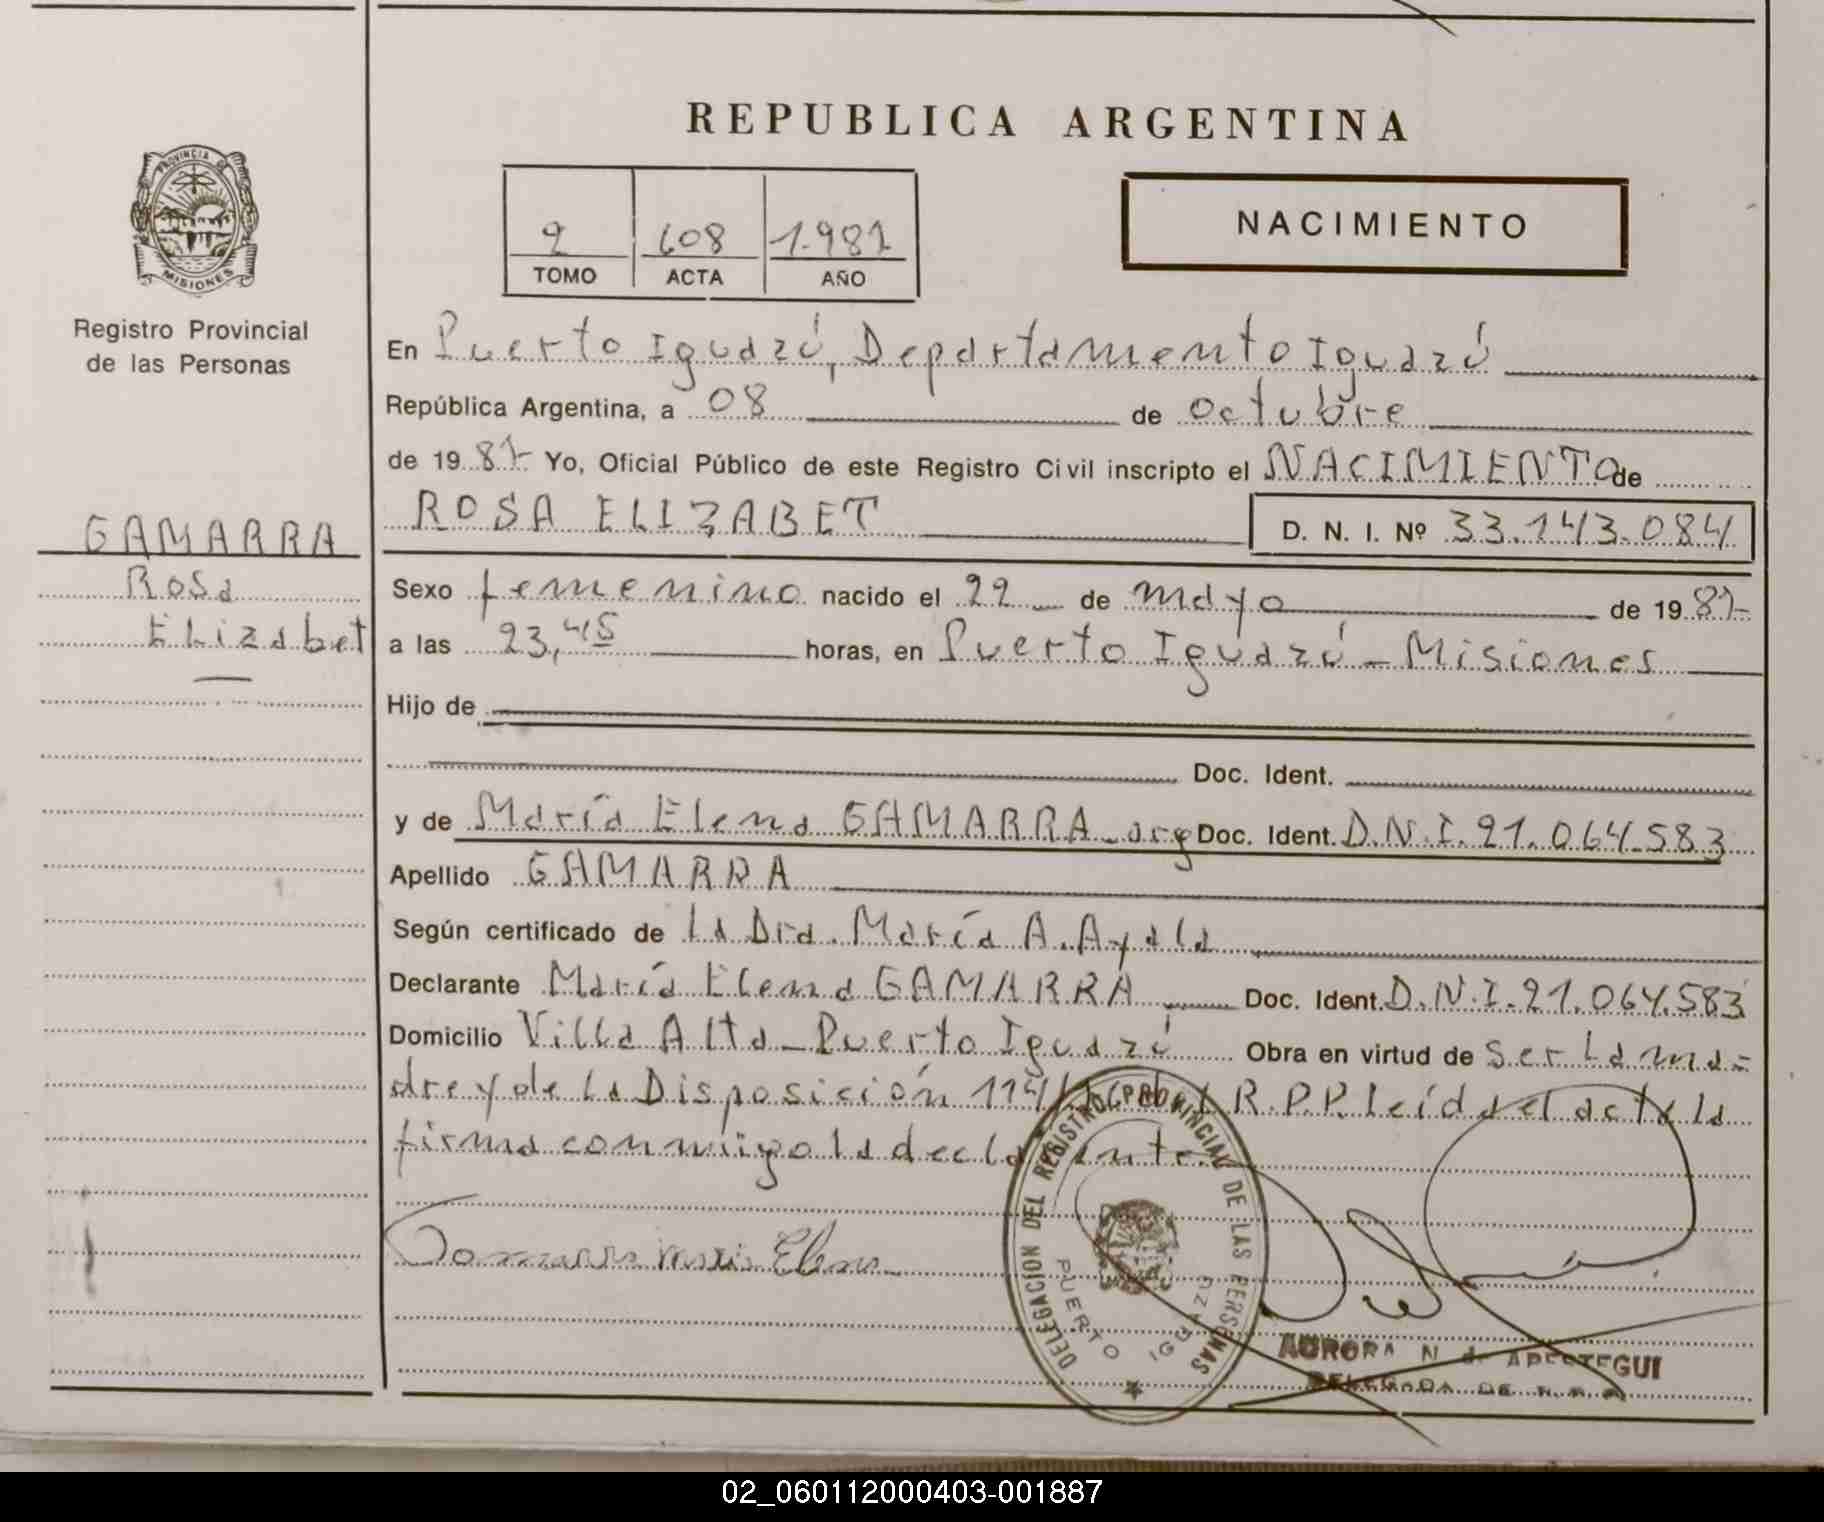 REPUBLICA ARGENTINA
PROVINCIA DE
MISIONES
Registro Provincial
de las Personas
2 608 1.987
TOMO ACTA AÑO
NACIMIENTO
En Puerto Iguazú, Departamento Iguazú
República Argentina, a 08 de octubre
de 19 87- Yo, Oficial Público de este Registro Civil inscripto el NACIMIENTO de
ROSA ELIZABET D. N. I. Nº 33.143.084
GAMARRA
Rosa
Elizabet
Sexo femenino nacido el 22 de mayo de 19 87-
a las 23,45 horas, en Puerto Iguazú - Misiones
Hijo de
Doc. Ident.
y de María Elena GAMARRA - arg Doc. Ident. D.N.I. 21.064.583
Apellido GAMARRA
Según certificado de la Dra. María A. Ayala
Declarante María Elena GAMARRA Doc. Ident. D.N.I. 21.064.583
Domicilio Villa Alta - Puerto Iguazú Obra en virtud de ser la ma=
dre y de la Disposición 114/ R.P.P. leída el acta la
firma conmigo la declarante.
Gamarra Maria Elena
DELEGACION DEL REGISTRO PROVINCIAL DE LAS PERSONAS
PUERTO IGUAZU
AURORA N de APESTEGUI
DELEGADA DE
02_060112000403-001887